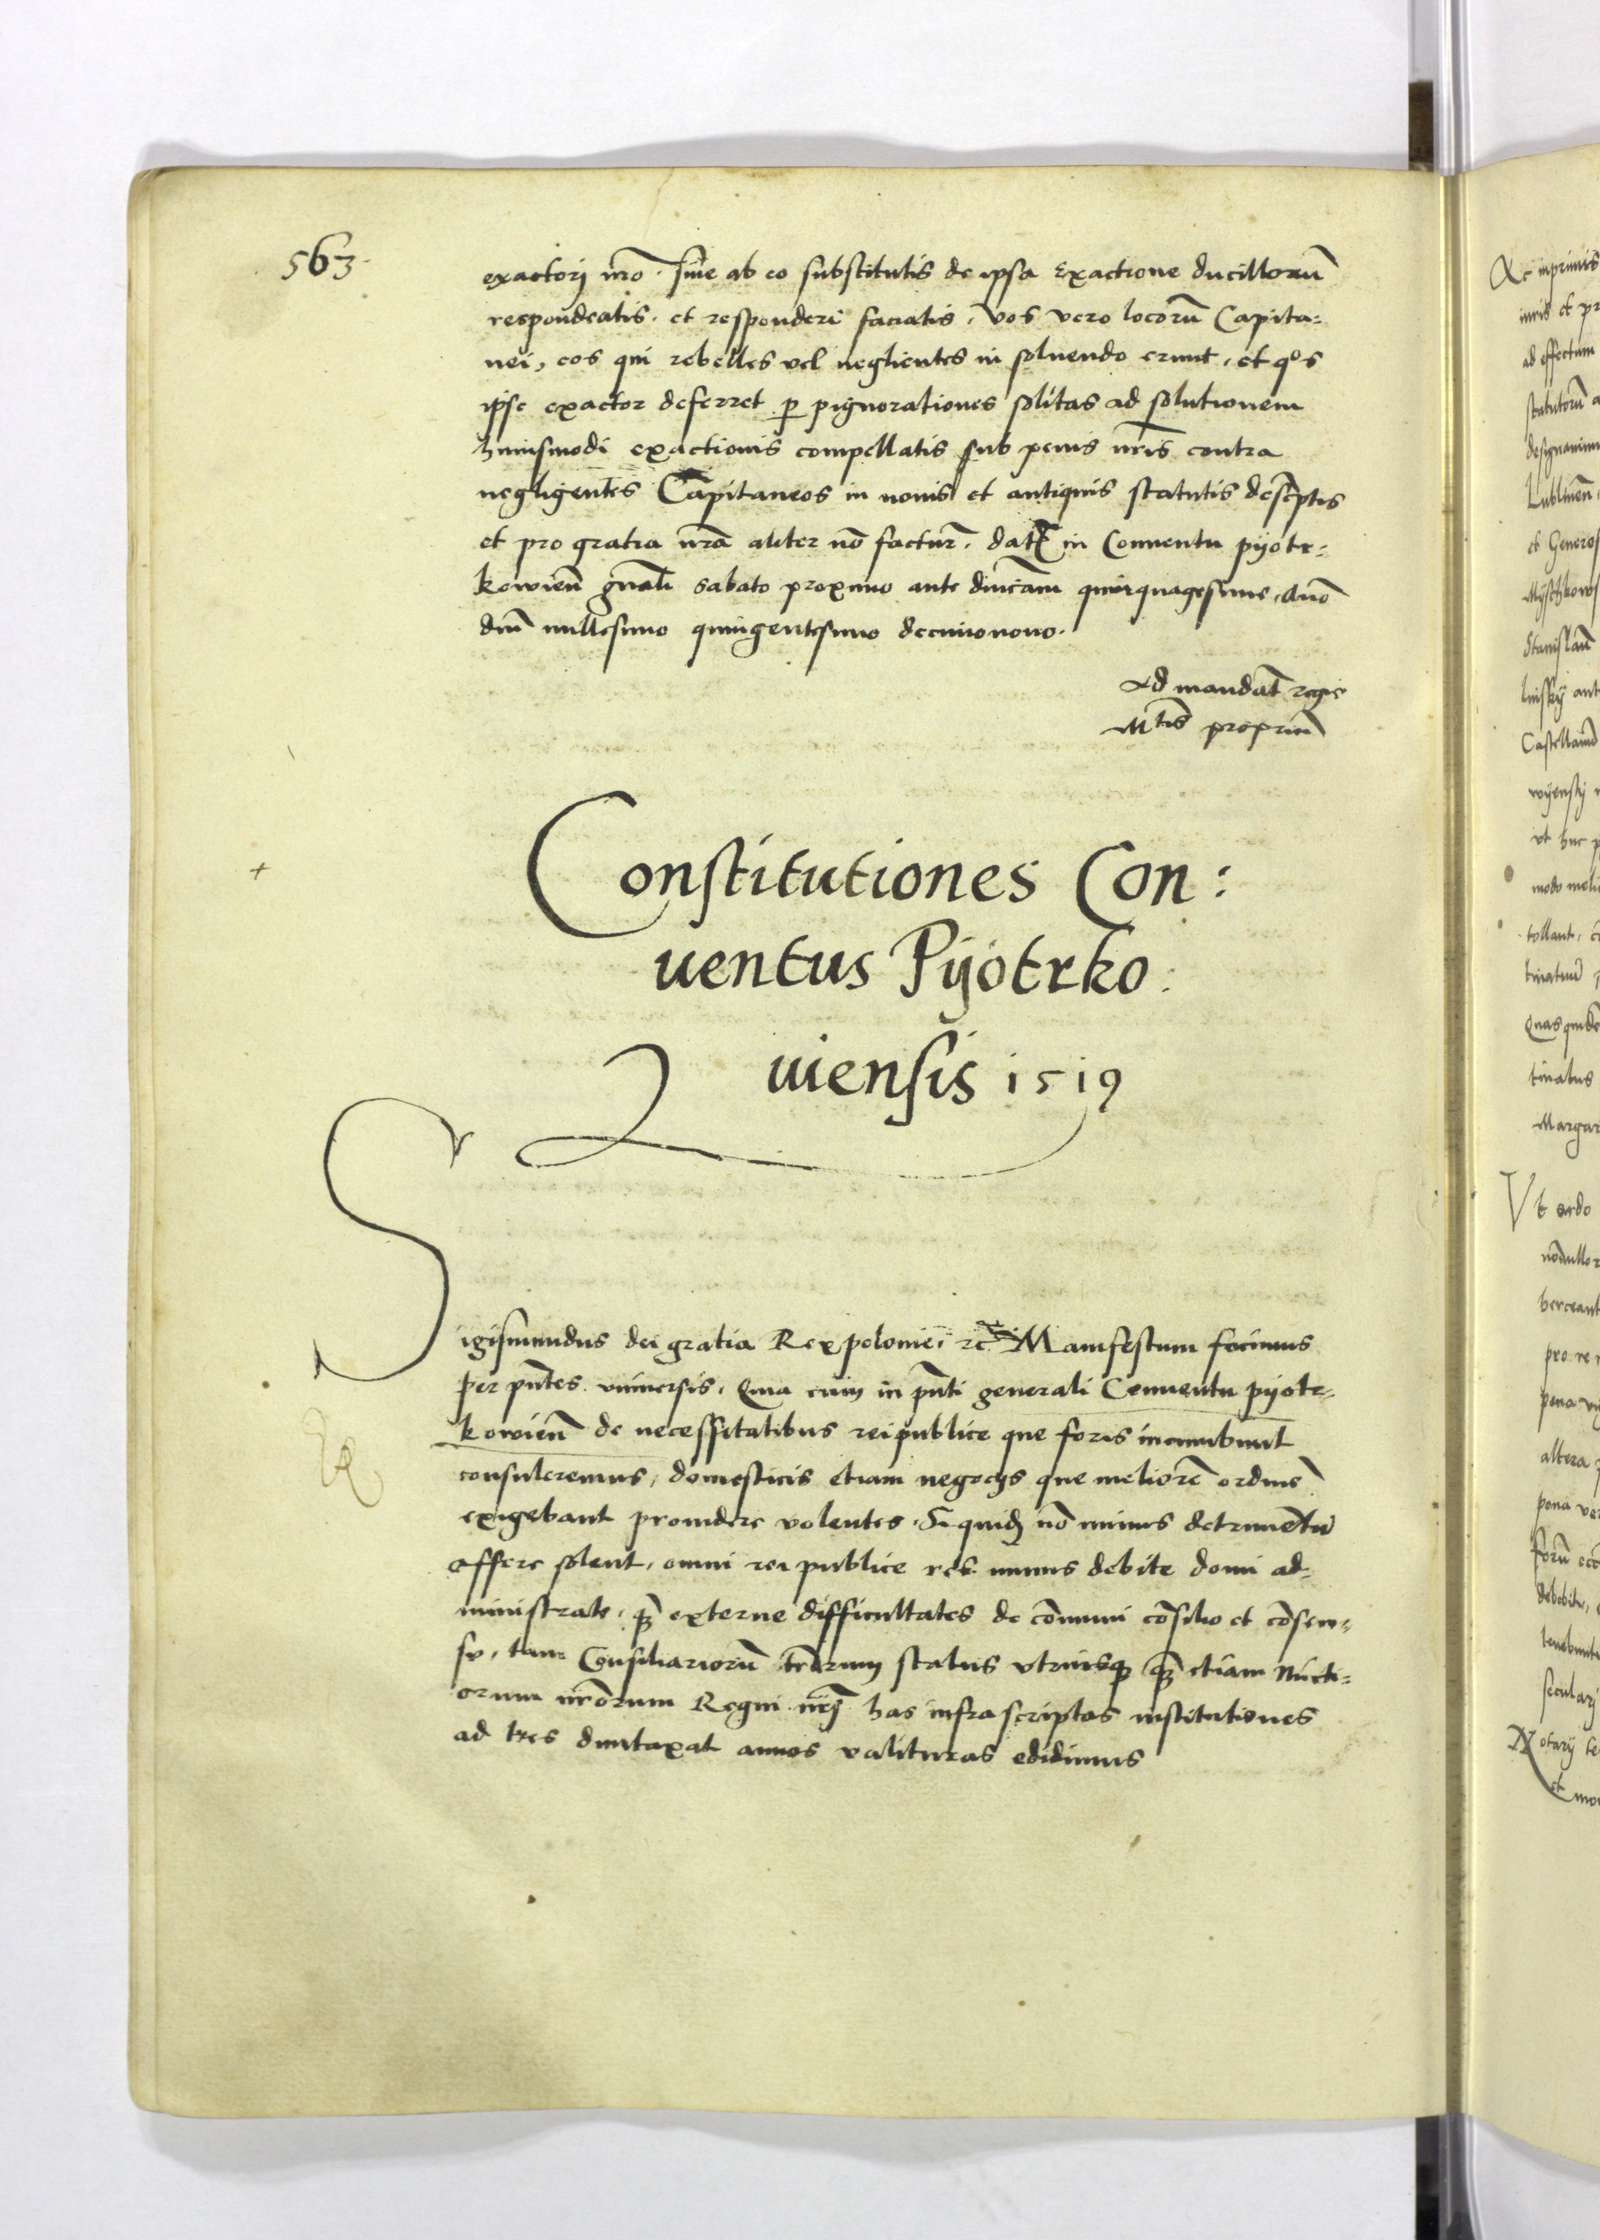 563.
exactorj nr̃o. siue ab eo substitutis de ipsa Exactione ducillorũ
respondeatis. et responderi faciatis. Vos vero locorũ Capita=
nei, eos qui rebelles vel neglientes in soluendo erunt, et qos
ipse exactor deferret p pignorationes solitas ad solutionem
huiusmodi exactionis compellatis sub penis nr̃is contra
negligentes Capitaneos in nouis et antiquis statutis descr̃ptis
et pro gratia nr̃a aliter nõ factur̃. dat̃ in Conuentu pijotr=
kowieñ gnãli sabato proximo ante dñicam quinquagesime, Ano
dñi millesimo quingentesimo decimonono.
Ad mandat̃ regie
Mtis propriũ
Constitutiones Con:
uentus Pijotrko:
uiensis 1519
Sigismundus dei gratia Rex polonie: rc̃ Manifestum facimus
per pñtes vniuersis, Quia cum in pñti generali Conuentu pijotr=
kowieñ de necessitatibus reipublice que foris incumbunt
consuleremus, domesticis etiam negocijs que meliorẽ ordinẽ
exigebant prouidere volentes. Siquidẽ nõ minus detrimentũ
affere solent, omni rei publice res minus debite domi ad=
ministrate, q̃ externe difficultates de cõmuni cõsilio et cõsen=
su, tam Consiliariorũ nr̃orum status vtriusq̃ q̃ etiam Nucti=
orum nr̃orum Regni nr̃j has infrascriptas institutiones
ad tres duntaxat annos valituras edidimus
Ac inprimis
iuris et pr
ad effectum
statutorũ a
designauimus
Lublineñ
et Generos
Mijschkows
Stanislaũ
linskij ant
Castellanũ
wijenskij
vt huc p
modo meli
tollant, c
tinatiuũ
Quas quidẽ
tinatus
Margar
Vt ordo
nõnullor
berceant
pro re
pena vi
altera
pena ver
forũ ecc
debebit
tenebunt
secularj
Notarij te
et mo